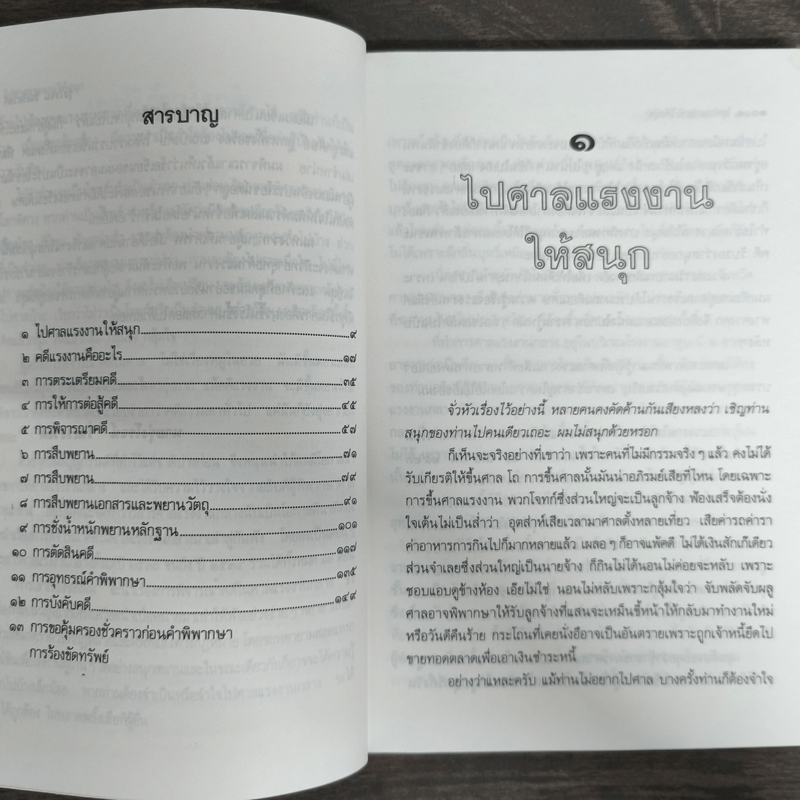 สารบาญ
๑ ไปศาลแรงงานให้สนุก....................๙
๒ คดีแรงงานคืออะไร....................๑๗
๓ การตระเตรียมคดี....................๓๕
๔ การให้การต่อสู้คดี....................๔๕
๕ การพิจารณาคดี....................๕๗
๖ การสืบพยาน....................๗๑
๗ การสืบพยาน....................๗๙
๘ การสืบพยานเอกสารและพยานวัตถุ....................๙๑
๙ การชั่งน้ำหนักพยานหลักฐาน....................๑๐๑
๑๐ การตัดสินคดี....................๑๑๗
๑๑ การอุทธรณ์คำพิพากษา....................๑๓๕
๑๒ การบังคับคดี....................๑๔๙
๑๓ การขอคุ้มครองชั่วคราวก่อนคำพิพากษา
การร้องขัดทรัพย์
๑
ไปศาลแรงงาน
ให้สนุก
จั่วหัวเรื่องไว้อย่างนี้ หลายคนคงคัดค้านกันเสียงหลงว่า เชิญท่าน
สนุกของท่านไปคนเดียวเถอะ ผมไม่สนุกด้วยหรอก
ก็เห็นจะจริงอย่างที่เขาว่า เพราะคนที่ไม่มีกรรมจริงๆ แล้ว คงไม่ได้
รับเกียรติให้ขึ้นศาล โถ การขึ้นศาลนั้นมันน่าอภิรมย์เสียที่ไหน โดยเฉพาะ
การขึ้นศาลแรงงาน พวกโจทก์ซึ่งส่วนใหญ่จะเป็นลูกจ้าง ฟ้องเสร็จต้องนั่ง
ใจเต้นไม่เป็นส่ำว่า อุตส่าห์เสียเวลามาศาลตั้งหลายเที่ยว เสียค่ารถค่ารา
ค่าอาหารการกินไปก็มากหลายแล้ว เผลอๆ ก็อาจแพ้คดี ไม่ได้เงินสักเก๊เดียว
ส่วนจำเลยซึ่งส่วนใหญ่เป็นนายจ้าง ก็กินไม่ได้นอนไม่ค่อยจะหลับ เพราะ
ชอบแอบดูข้างห้อง เอ๊ยไม่ใช่ นอนไม่หลับเพราะกลุ้มใจว่า จับพลัดจับผลู
ศาลอาจพิพากษาให้รับลูกจ้างที่แสนจะเหม็นขี้หน้าให้กลับมาทำงานใหม่
หรือวันดีคืนร้าย กระโถนที่เคยนั่งอึอาจเป็นอันตรายเพราะถูกเจ้าหนี้ยึดไป
ขายทอดตลาดเพื่อเอาเงินชำระหนี้
อย่างว่าแหละครับ แม้ท่านไม่อยากไปศาล บางครั้งท่านก็ต้องจำใจ